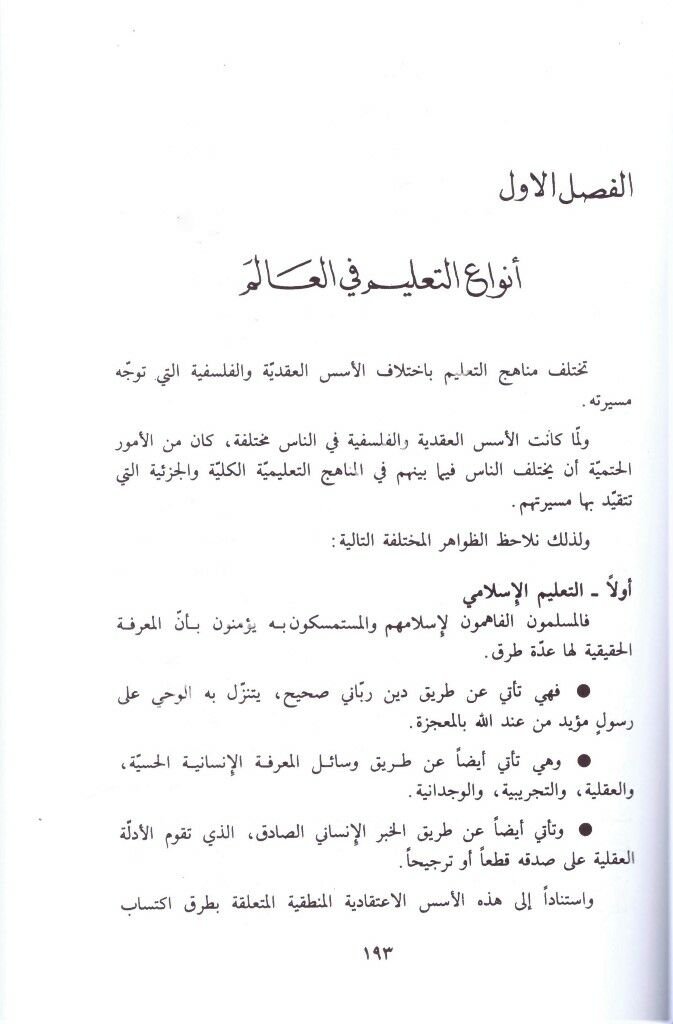 الفصل الاول
أنواع التعليم في العالم
تختلف مناهج التعليم باختلاف الأسس العقديّة والفلسفية التي توجّه
مسيرته.
ولمّا كانت الأسس العقدية والفلسفية في الناس مختلفة، كان من الأمور
الحتميّة أن يختلف الناس فيما بينهم في المناهج التعليميّة الكليّة والجزئية التي
تتقيّد بها مسيرتهم.
ولذلك نلاحظ الظواهر المختلفة التالية:
أولاً ـ التعليم الإسلامي
فالمسلمون الفاهمون لإسلامهم والمستمسكون به يؤمنون بأنّ المعرفة
الحقيقية لها عدّة طرق.
● فهي تأتي عن طريق دين ربّاني صحيح، يتنزّل به الوحي على
رسولٍ مؤيد من عند الله بالمعجزة.
● وهي تأتي أيضاً عن طريق وسائل المعرفة الإنسانية الحسيّة،
والعقلية، والتجريبية، والوجدانية.
● وتأتي أيضاً عن طريق الخبر الإنساني الصادق، الذي تقوم الأدلّة
العقلية على صدقه قطعاً أو ترجيحاً.
واستناداً إلى هذه الأسس الاعتقادية المنطقية المتعلقة بطرق اكتساب
١٩٣